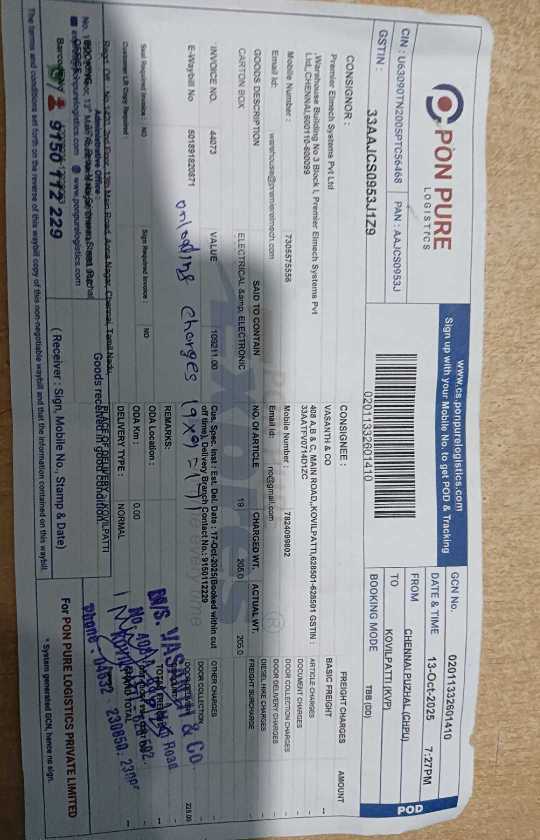 PON PURE
LOGISTICS
CIN : U63090TN2005PTC56468
PAN : AAJCS0953J
GSTIN :
33AAJCS0953J1Z9
www.cs.ponpurelogistics.com
Sign up with your Mobile No. to get POD & Tracking
02011332601410
GCN No. 02011332601410
DATE & TIME 13-Oct-2025 7:27PM
FROM CHENNAI PUZHAL (CHPU)
TO KOVILPATTI (KVP)
BOOKING MODE TBB (DD)
POD
CONSIGNOR :
Premier Elmech Systems Pvt Ltd
,Warehouse Building No 3 Block I, Premier Elmech Systems Pvt
Ltd, CHENNAI,600110-600099
Mobile Number : 7305575556
Email Id: warehouse@premierelmech.com
CONSIGNEE :
VASANTH & CO
408 A,B & C, MAIN ROAD,,KOVILPATTI,628501-628501 GSTIN :
33AATFV0714D1ZC
Mobile Number : 7824099802
Email Id: no@gmail.com
FREIGHT CHARGES AMOUNT
BASIC FREIGHT --
ARTICLE CHARGES
DOCUMENT CHARGES
DOOR COLLECTION CHARGES
DOOR DELIVERY CHARGES
DIESEL HIKE CHARGES
FREIGHT SURCHARGE
OTHER CHARGES
DOOR COLLECTION
228.00
GOODS DESCRIPTION SAID TO CONTAIN NO. OF ARTICLE CHARGED WT. ACTUAL WT.
CARTON BOX ELECTRICAL &amp; ELECTRONIC 19 205.0 205.0
INVOICE NO. 44073 VALUE 109211.00
E-Waybill No 501891820871
Cus. Spec. Inst : Est. Del. Date : 17-Oct-2025(Booked within cut
off time), Delivery Branch Contact No.: 9150112229
onloding charges 19x9=171
REMARKS:
ODA Location :
ODA Km : 0.00
DELIVERY TYPE : NORMAL
Seal Required Invoice : NO
Sign Required Invoice : NO
Consignor L/R Copy Required
PLACE OF DELIVERY : KOVILPATTI
Goods received in good condition
M/S. VASANTH & CO
Road
Phone : 04632 230850, 2300
Administrative Office :
www.ponpurelogistics.com
9150 112 229
(Receiver : Sign, Mobile No., Stamp & Date)
For PON PURE LOGISTICS PRIVATE LIMITED
* System generated GCN, hence no sign.
The terms and conditions set forth on the reverse of this waybill copy of this non-negotiable waybill and that the information contained on this waybill.